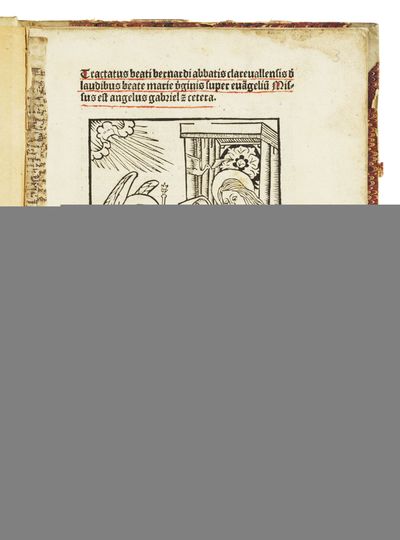 Tractatus beati bernardi abbatis clareuallensis ď
laudibus beate marie ỽginis super euāgeliū Mis-
sus est angelus gabriel ꝛ cetera.